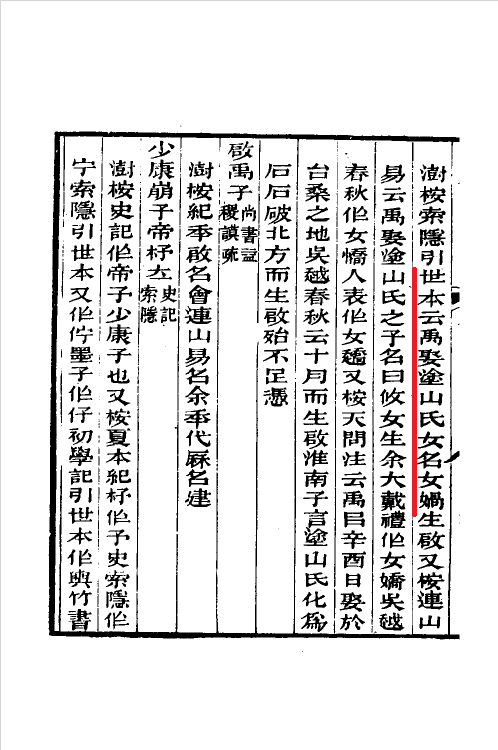 澍桉索隱引世本云禹娶塗山氏女名女媧生啟又桉連山
易云禹娶塗山氏之子名曰攸女生余大戴禮作女嬌吳越
春秋作女憍人表作女趫又桉天問注云禹㠯辛酉日娶於
台桑之地吳越春秋云十月而生啟淮南子言塗山氏化爲
石石破北方而生啟殆不足憑
啟禹子尚書謚稷謨疏
澍桉紀秊啟名會連山易名余秊代厤名建
少康崩子帝杼立史記索隱
澍桉史記作帝子少康子也又桉夏本紀杼作予史索隱作
宁索隱引世本又作佇墨子作仔初學記引世本作輿竹書